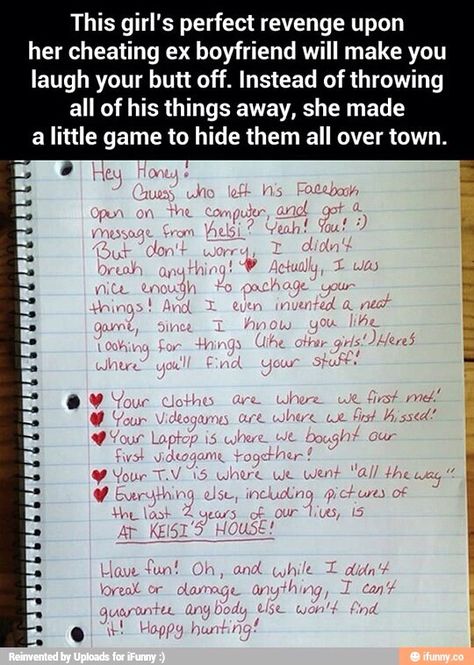 This girl's perfect revenge upon
her cheating ex boyfriend will make you
laugh your butt off. Instead of throwing
all of his things away, she made
a little game to hide them all over town.
Hey Honey!
Guess who left his Facebook
open on the computer, and got a
message from Kelsi? Yeah! You! :)
But don't worry, I didn't
break anything! Actually, I was
nice enough to package your
things! And I even invented a neat
game, since I know you like
looking for things (like other girls!) Here's
where you'll find your stuff!
Your clothes are where we first met!
Your Videogames are where we first kissed!
Your Laptop is where we bought our
first videogame together!
Your T.V is where we went "all the way".
Everything else, including pictures of
the last 2 years of our lives, is
AT KElSI'S HOUSE!
Have fun! Oh, and while I didn't
break or damage anything, I can't
guarantee anybody else won't find
it! Happy hunting!
Reinvented by Uploads for iFunny :)
ifunny.co